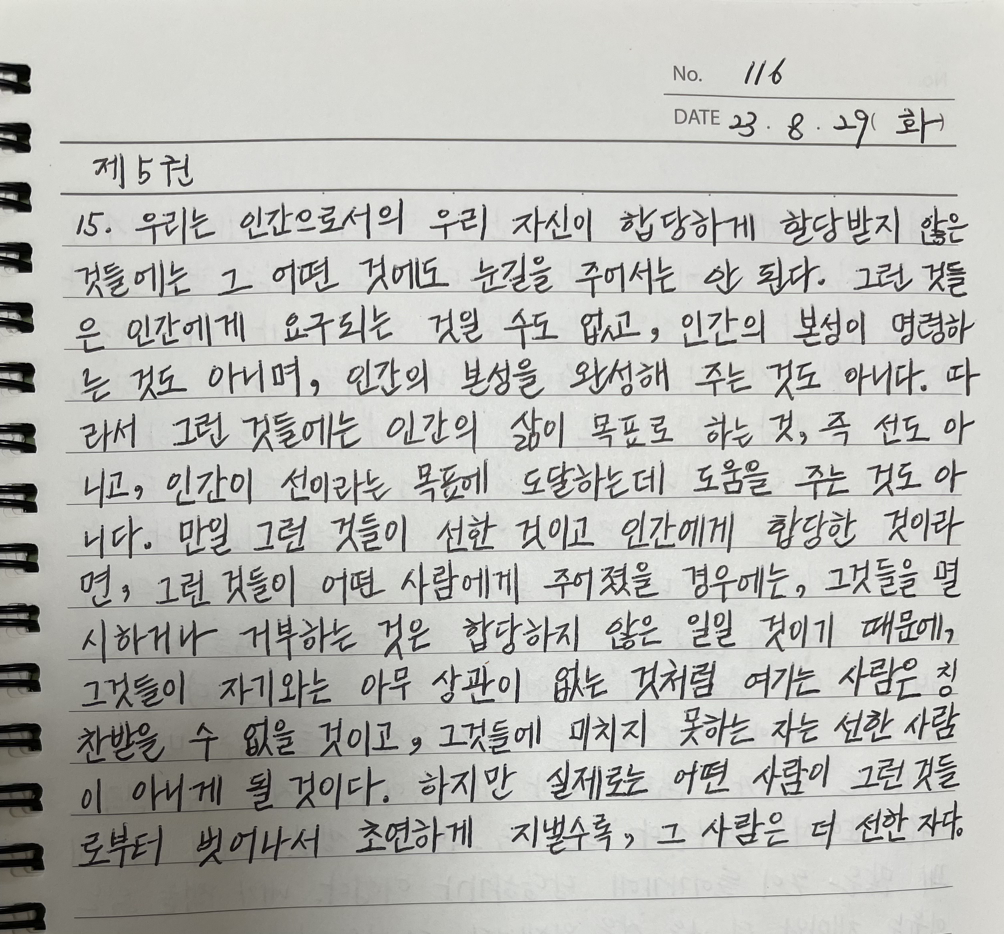 No. 116
DATE 23. 8. 29(화)
제5권
15. 우리는 인간으로서의 우리 자신이 합당하게 할당받지 않은
것들에는 그 어떤 것에도 눈길을 주어서는 안 된다. 그런 것들
은 인간에게 요구되는 것일 수도 없고, 인간의 본성이 명령하
는 것도 아니며, 인간의 본성을 완성해 주는 것도 아니다. 따
라서 그런 것들에는 인간의 삶이 목표로 하는 것, 즉 선도 아
니고, 인간이 선이라는 목표에 도달하는데 도움을 주는 것도 아
니다. 만일 그런 것들이 선한 것이고 인간에게 합당한 것이라
면, 그런 것들이 어떤 사람에게 주어졌을 경우에는, 그것들을 멸
시하거나 거부하는 것은 합당하지 않은 일일 것이기 때문에,
그것들이 자기와는 아무 상관이 없는 것처럼 여기는 사람은 칭
찬받을 수 없을 것이고, 그것들에 미치지 못하는 자는 선한 사람
이 아니게 될 것이다. 하지만 실제로는 어떤 사람이 그런 것들
로부터 벗어나서 초연하게 지낼수록, 그 사람은 더 선한 자다.